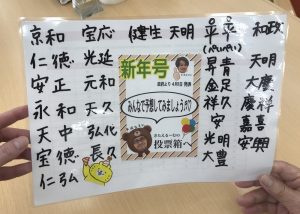 京和 宝応 健生 天明 平平 和政
仁徳 光延
安正 元和
永和 天久
天中 弘化
宝徳 長久
仁弘
新年号
みんなで予想してみましょう!!
投票箱へ
昇青 天明
金足 大慶
祥久 慶祥
安 嘉喜
光明 安興
大豊